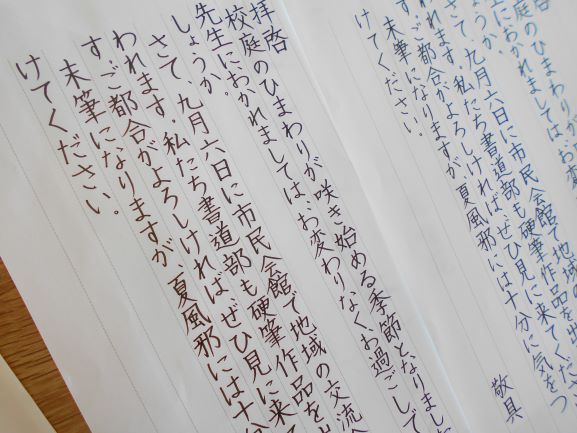 拝啓
校庭のひまわりが咲き始める季節となりました
先生におかれましては、お変わりなくお過ごしで
しょうか。
さて、九月六日に市民会館で地域の交流
われます。私たち書道部も硬筆作品を出
す。ご都合がよろしければぜひ見に来
末筆になりますが夏風邪には十分
けてください。
啓
庭のひまわりが
生におかれましてはお変
ょうか。
さて、九月六日に市民会館で地域の
われます。私たち書道部も硬筆作品を出
す。ご都合がよろしければぜひ見に来てくださ
末筆になりますが夏風邪には十分に気をつ
けてください。
敬具